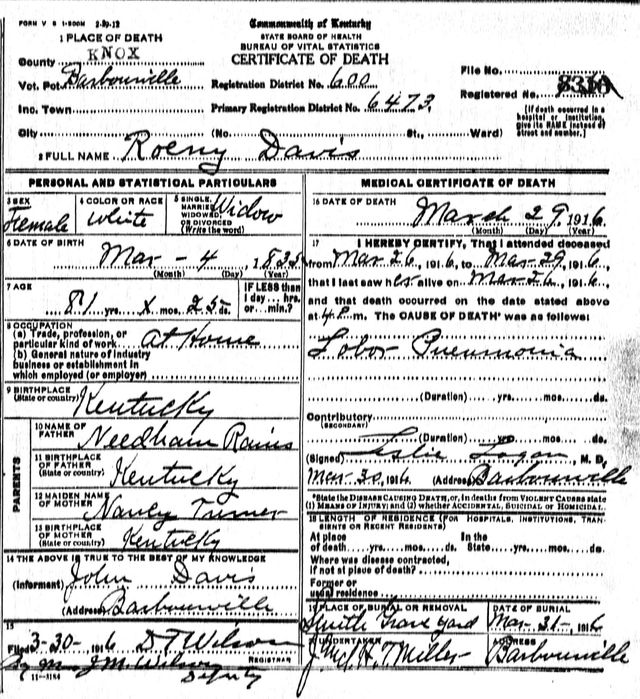 FORM V S 1-500M 2-30-12
Commonwealth of Kentucky
STATE BOARD OF HEALTH
BUREAU OF VITAL STATISTICS
CERTIFICATE OF DEATH
1 PLACE OF DEATH
County KNOX
Vot. Pct. Barbourville
Inc. Town
City
Registration District No. 600
Primary Registration District No. 6473
(No. St., Ward)
File No.
Registered No.
[If death occurred in a
hospital or institution,
give its NAME instead of
street and number.]
2 FULL NAME Roeny Davis
PERSONAL AND STATISTICAL PARTICULARS
3 SEX
Female
4 COLOR OR RACE
White
5 SINGLE,
MARRIED,
WIDOWED,
OR DIVORCED
(Write the word)
Widow
6 DATE OF BIRTH
Mar - 4, 1835
(Month) (Day) (Year)
7 AGE
81 yrs. X mos. 25 ds.
IF LESS than
1 day... hrs.
or ... min.?
8 OCCUPATION
(a) Trade, profession, or
particular kind of work At Home
(b) General nature of industry
business or establishment in
which employed (or employer)
9 BIRTHPLACE
(State or country)
Kentucky
PARENTS
10 NAME OF
FATHER
Needham Rains
11 BIRTHPLACE
OF FATHER
(State or country)
Kentucky
12 MAIDEN NAME
OF MOTHER
Nancy Turner
13 BIRTHPLACE
OF MOTHER
(State or country)
Kentucky
14 THE ABOVE IS TRUE TO THE BEST OF MY KNOWLEDGE
(Informant) John Davis
(Address) Barbourville
15
Filed 3-30-1916 D T Wilson
REGISTRAR
By Mrs J.M. Wilson
Deputy
11-3184
MEDICAL CERTIFICATE OF DEATH
16 DATE OF DEATH
March 29, 1916
(Month) (Day) (Year)
17 I HEREBY CERTIFY, That I attended deceased
from Mar 26, 1916, to Mar 29, 1916
that I last saw her alive on Mar 26, 1916,
and that death occurred on the date stated above
at 4 P m. The CAUSE OF DEATH* was as follows:
Lobor Pneumonia
(Duration) yrs. mos. ds.
Contributory
(SECONDARY)
(Duration) yrs. mos. ds.
(Signed) Leslie Logan, M. D.
Mar 30, 1916 (Address) Barbourville
*State the DISEASE CAUSING DEATH, or, in deaths from VIOLENT CAUSES state
(1) MEANS OF INJURY; and (2) whether ACCIDENTAL, SUICIDAL or HOMICIDAL.
18 LENGTH OF RESIDENCE (FOR HOSPITALS, INSTITUTIONS, TRAN-
SIENTS OR RECENT RESIDENTS)
At place In the
of death yrs. mos. ds. State yrs. mos. ds.
Where was disease contracted,
if not at place of death?
Former or
usual residence
19 PLACE OF BURIAL OR REMOVAL
Smith Grave yard
DATE OF BURIAL
Mar. 31-, 1916
20 UNDERTAKER
H. T. Miller
ADDRESS
Barbourville